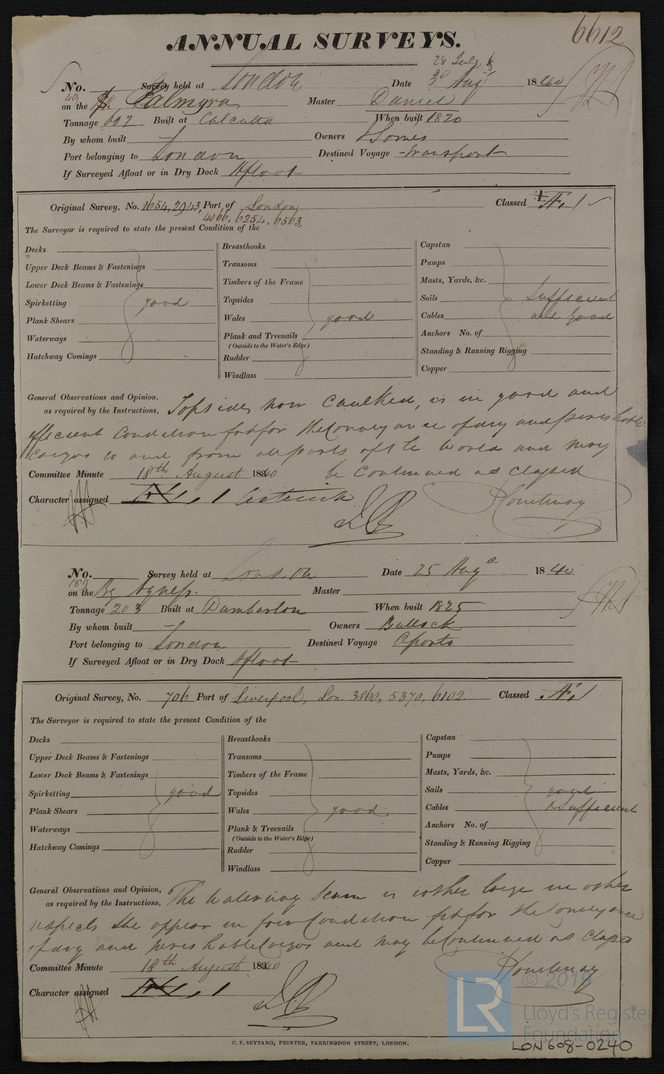 6612
ANNUAL SURVEYS.
28 July &
No. Survey held at London Date 3d Augt 1840
40
on the Palmyra Master Daniel
Tonnage Built at Calcutta When built 1820
By whom built Owners Somes
Port belonging to London Destined Voyage Transport
If Surveyed Afloat or in Dry Dock Afloat
Original Survey, No. 1654, 2943, Port of London Classed A.1
4066, 6254, 6563,
The Surveyor is required to state the present Condition of the
Decks Breasthooks Capstan
Upper Deck Beams & Fastenings Transoms Pumps
Lower Deck Beams & Fastenings Timbers of the Frame Masts, Yards, &c.
Spirketting good Topsides Sails Sufficient
Plank Shears Wales good Cables and good
Waterways Plank and Treenails Anchors No. of
(Outside to the Water's Edge)
Hatchway Comings Rudder Standing & Running Rigging
Windlass Copper
General Observations and Opinion, Topsides now Caulked, is in good and
as required by the Instructions,
efficient Condition for the Conveyance of dry and perishable
cargos to and from all parts of the World and may
Committee Minute 18th August 1840 be Continued as classed
Character assigned 1 Courtenay
No. Survey held at London Date 25 Augt 1840
on the Bg Agnes. Master
Tonnage 203 Built at Dumbarton When built 1825
By whom built Owners Bullock
Port belonging to London Destined Voyage Oporto
If Surveyed Afloat or in Dry Dock Afloat
Original Survey, No. 706 Port of Liverpool, Lon. 3860, 5370, 6102. Classed A.1
The Surveyor is required to state the present Condition of the
Decks Breasthooks Capstan
Upper Deck Beams & Fastenings Transoms Pumps
Lower Deck Beams & Fastenings Timbers of the Frame Masts, Yards, &c.
Spirketting good Topsides Sails good
Plank Shears Wales good Cables & Sufficient
Waterways Plank & Treenails Anchors No. of
(Outside to the Water's Edge)
Hatchway Comings Rudder Standing & Running Rigging
Windlass Copper
General Observations and Opinion, The Watering Seam is rather large in other
as required by the Instructions,
respects she appear in fair Condition for the Conveyance
of dry and perishable Cargos and may be Continued as Classed
Committee Minute 18th August 1840 Courtenay
Character assigned 1
LR © 2019
Lloyd's Register
Foundation
C. F. SEYFANG, PRINTER, FARRINGDON STREET, LONDON.
LON608-0240